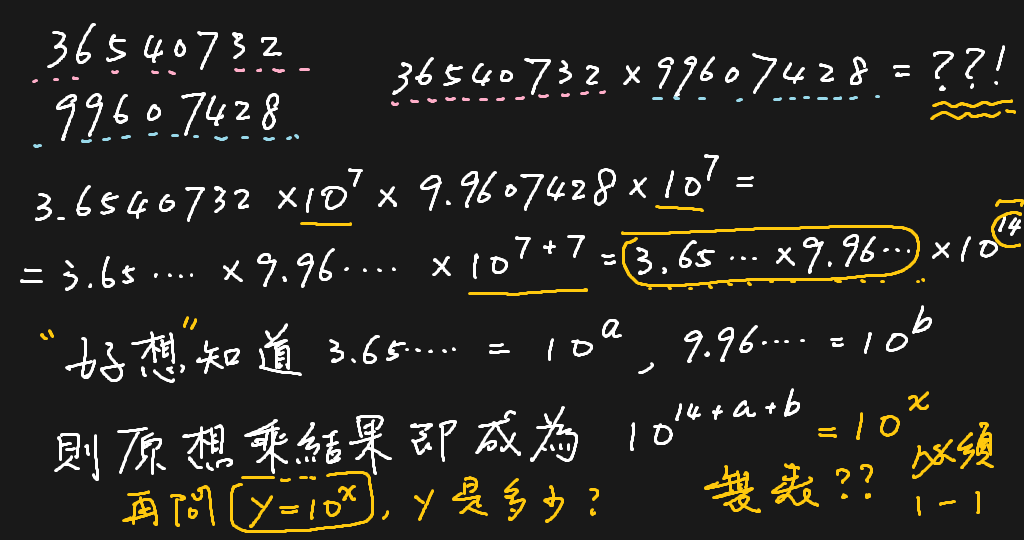 36540732
99607428
36540732 × 99607428 = ??!
3.6540732 × 10^7 × 9.9607428 × 10^7 =
= 3.65 ···· × 9.96 ···· × 10^{7+7} = 3.65 ··· × 9.96 ··· × 10^{14}
"好想"知道 3.65····· = 10^a , 9.96···· = 10^b
則原想乘結果即成為 10^{14+a+b} = 10^x
再問 y = 10^x , y 是多少?
查表?? 必須
1-1